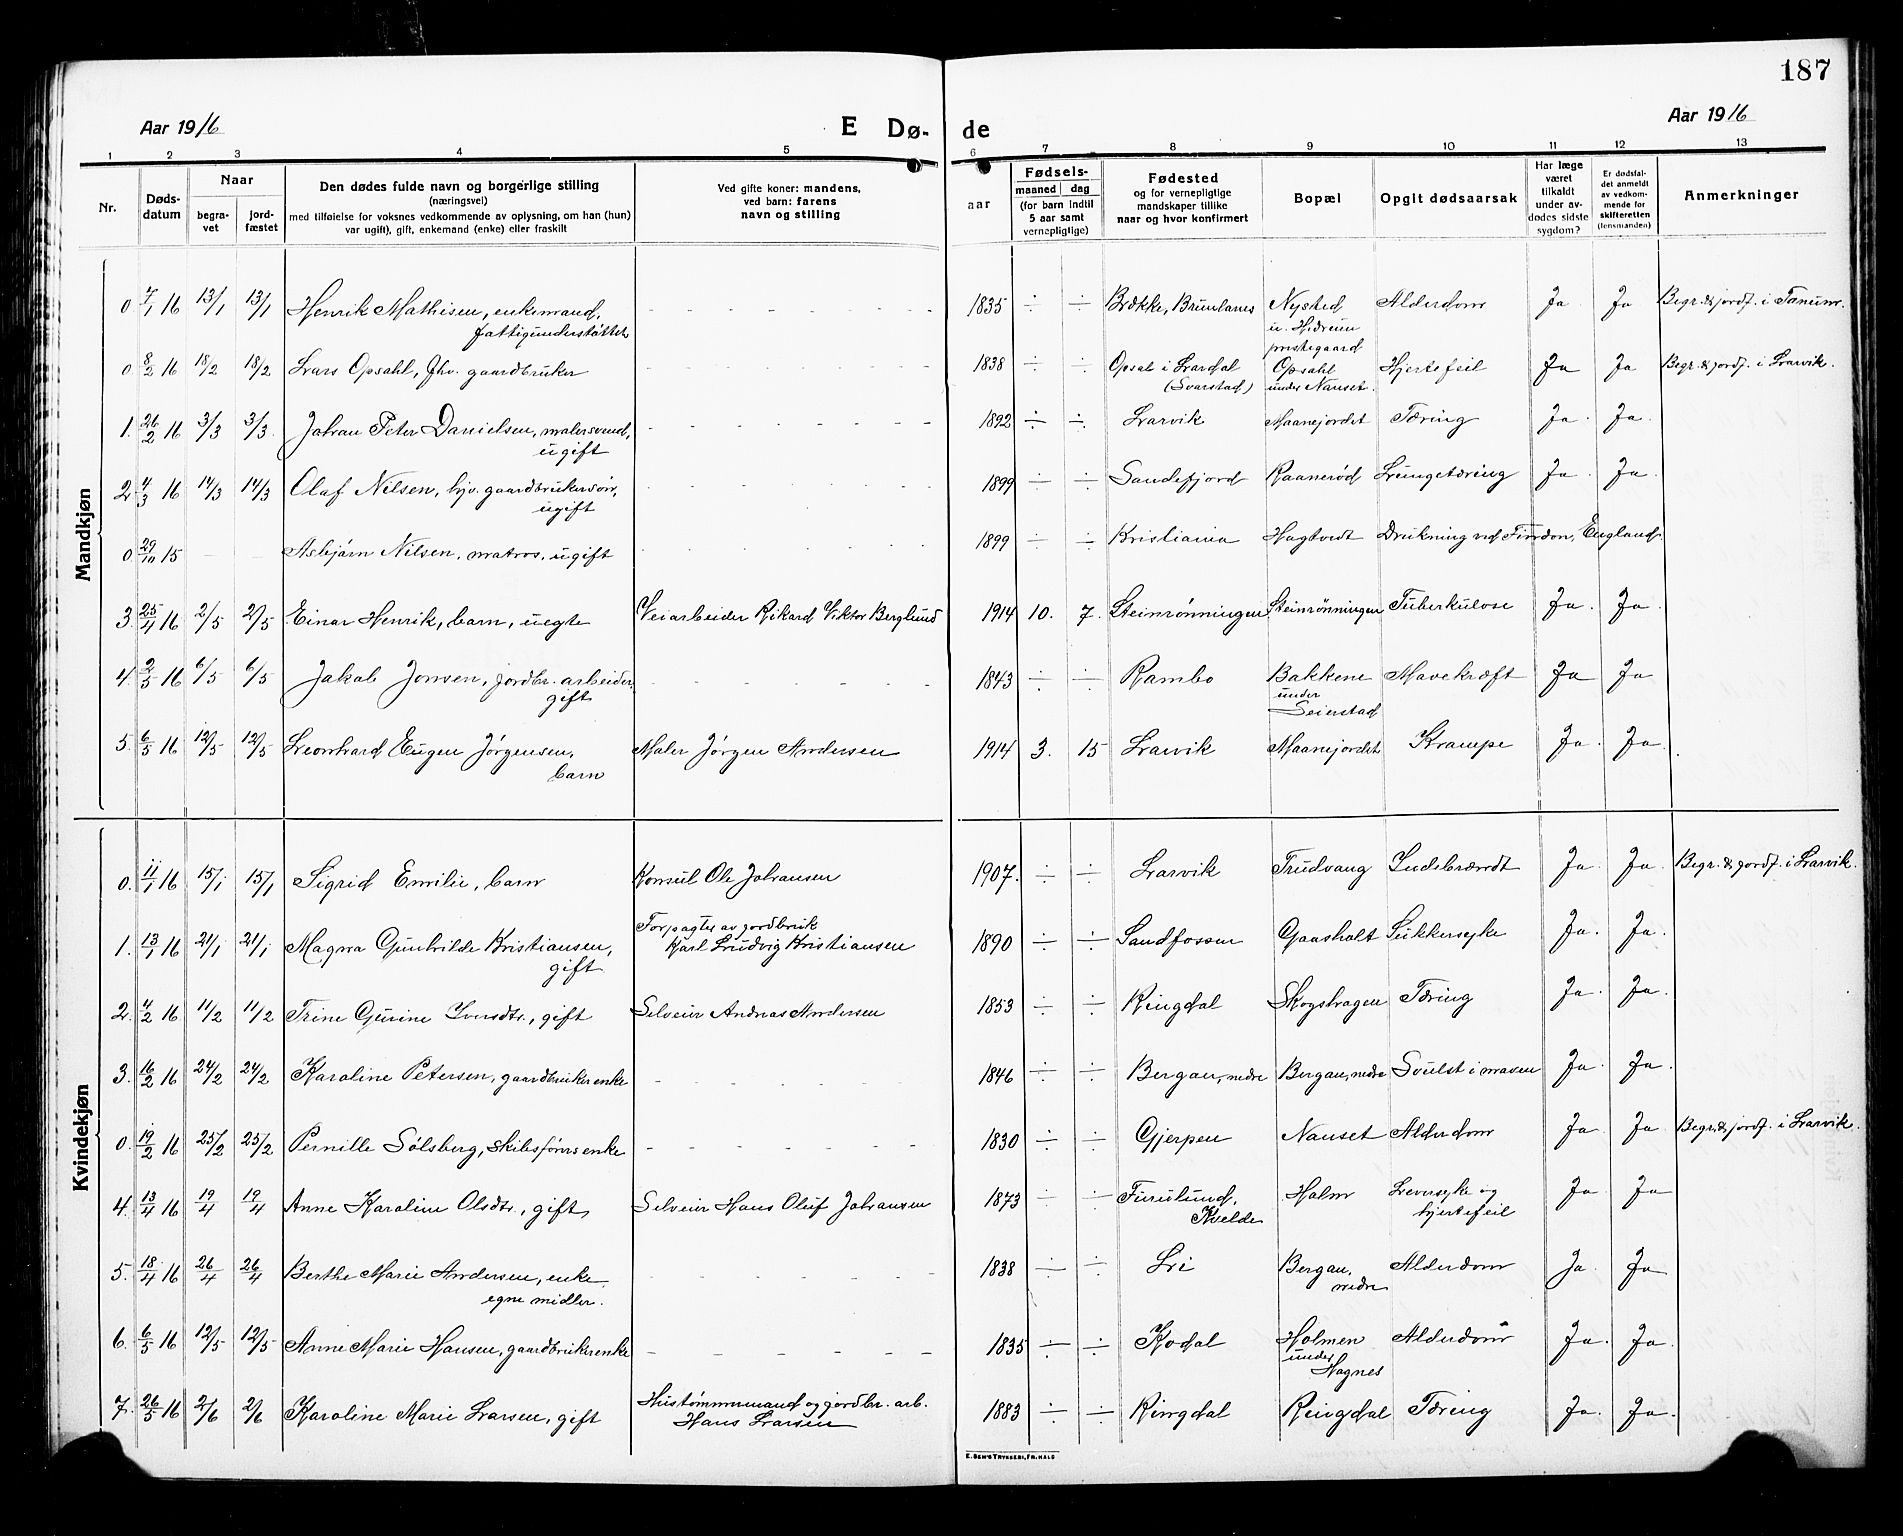 187
Aar 1916
E Dø- de
Aar 1916
1 2 3 4 5 6 7 8 9 10 11 12 13
Nr.
Døds-
datum
Naar
begra-
vet
jord-
fæstet
Den dødes fulde navn og borgerlige stilling
(næringsvei)
med tilføielse for voksnes vedkommende av oplysning, om han (hun)
var ugift), gift, enkemand (enke) eller fraskilt
Ved gifte koner: mandens,
ved barn: farens
navn og stilling
Fødsels-
aar
maaned
dag
(for barn indtil
5 aar samt
vernepligtige)
Fødested
og for vernepligtige
mandskaper tillike
naar og hvor konfirmert
Bopæl
Opgit dødsaarsak
Har læge
været
tilkaldt
under av-
dødes sidste
sygdom?
Er dødsfal-
det anmeldt
av vedkom-
mende for
skifteretten
(lensmanden)
Anmerkninger
Mandkjøn
0. 7/1 16 13/1 13/1 Henrik Mathisen, enkemand, - - - 1835 ÷ ÷ Brække, Brunlanes Nysted Alderdom Ja Ja Begr. & jordf. i Tanum.
fattigunderstøttet u. Hedrum
prestegaard
0. 8/2 16 18/2 18/2 Lars Opsahl, fhv. gaardbruker - - - 1838 ÷ ÷ Opsal i Lardal Opsahl Hjertefeil Ja Ja Begr. & jordf. i Larvik.
(Svarstad) under Nanset.
1. 26/2 16 3/3 3/3. Johan Peter Danielsen, malersvend, - - - 1892 ÷ ÷ Larvik Maanejordet Tæring Ja Ja
ugift
2. 4/3 16 14/3 14/3 Olaf Nilsen, hjv. gaardbrukersøn, - - - 1899 ÷ ÷ Sandefjord Raanerød Lungetæring Ja Ja
ugift
0. 29/10 15 - - Asbjørn Nilsen, matros, ugift - - - 1899 ÷ ÷ Kristiania Hagtvedt Drukning ved England.
3. 25/4 16 2/5 2/5 Einar Henrik, barn, uegte Veiarbeider Rikard Viktor Berglund 1914 10. 7. Steinrønningen Steinrønningen Tuberkulose Ja Ja
4. 2/5 16 6/5 6/5 Jakob Jonsen, jordbr. arbeider, - - - 1843 ÷ ÷ Rambo Bakkene Mavekræft Ja Ja
gift under
Seierstad
5. 6/5 16 12/5 12/5 Leonhard Eugen Jørgensen, Maler Jørgen Andersen 1914 3. 15 Larvik Maanejordet Krampe Ja. Ja.
barn
Kvindekjøn
0. 11/1 16 15/1 15/1 Sigrid Emilie, barn Konsul Ole Johansen 1907. ÷ ÷ Larvik Trudvang Ja. Ja. Begr. & jordf. i Larvik.
Forpagter av jordbruk
1. 13/1 16 21/1 21/1 Magna Gunhilde Kristiansen, Karl Ludvig Kristiansen 1890 ÷ ÷ Sandfossen Gaasholt Sukkersyke Ja. Ja.
gift
2. 4/2 16 11/2 11/2 Trine Gurine Iversdtr., gift Selveier Andreas Andersen 1853 ÷ ÷ Ringdal Skogshagen Tæring Ja. Ja.
3. 16/2 16 24/2 24/2 Karoline Petersen, gaardbrukerenke - - - 1846 ÷ ÷ Bergan, nedre Bergan, nedre Svulst i maven Ja. Ja.
0. 19/2 16 25/2 25/2 Pernille Sølsberg, skibsførersenke - - - 1830 ÷ ÷ Gjerpen Nanset Alderdom Ja. Ja. Begr. & jordf. i Larvik.
4. 13/4 16 19/4 19/4 Anne Karoline Olsdtr., gift, Selveier Hans Oluf Johansen 1873 ÷ ÷ Furulund, Holm Leversyke og Ja. Ja
Kvelde hjertefeil
5. 18/4 16 26/4 26/4 Berthe Marie Andersen, enke - - - 1838 ÷ ÷ Lie Bergan, Alderdom Ja. Ja
egne midler. nedre
6. 6/5 16 12/5 12/5 Anne Marie Hansen, gaardbrukerenke - - - 1835 ÷ ÷ Kodal Holmen Alderdom Ja. Ja.
under
Hagnes
7. 26/5 16 2/6 2/6 Karoline Marie Larsen, gift Hustømmermand og jordbr. arb. 1883 ÷ ÷ Ringdal Ringdal Tæring Ja. Ja.
Hans Larsen
E. SEM'S TRYKKERI, FR.HALD